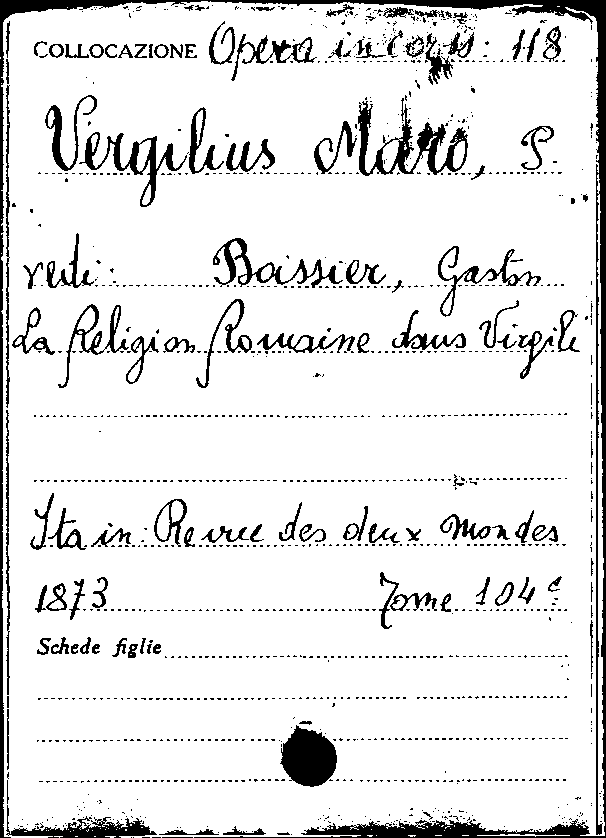 COLLOCAZIONE Opera in corso: 118
Vergilius Maro, P.
vedi: Boissier, Gaston
La Religion Romaine dans Virgile
Sta in: Revue des deux Mondes
1873 Tome 104e
Schede figlie